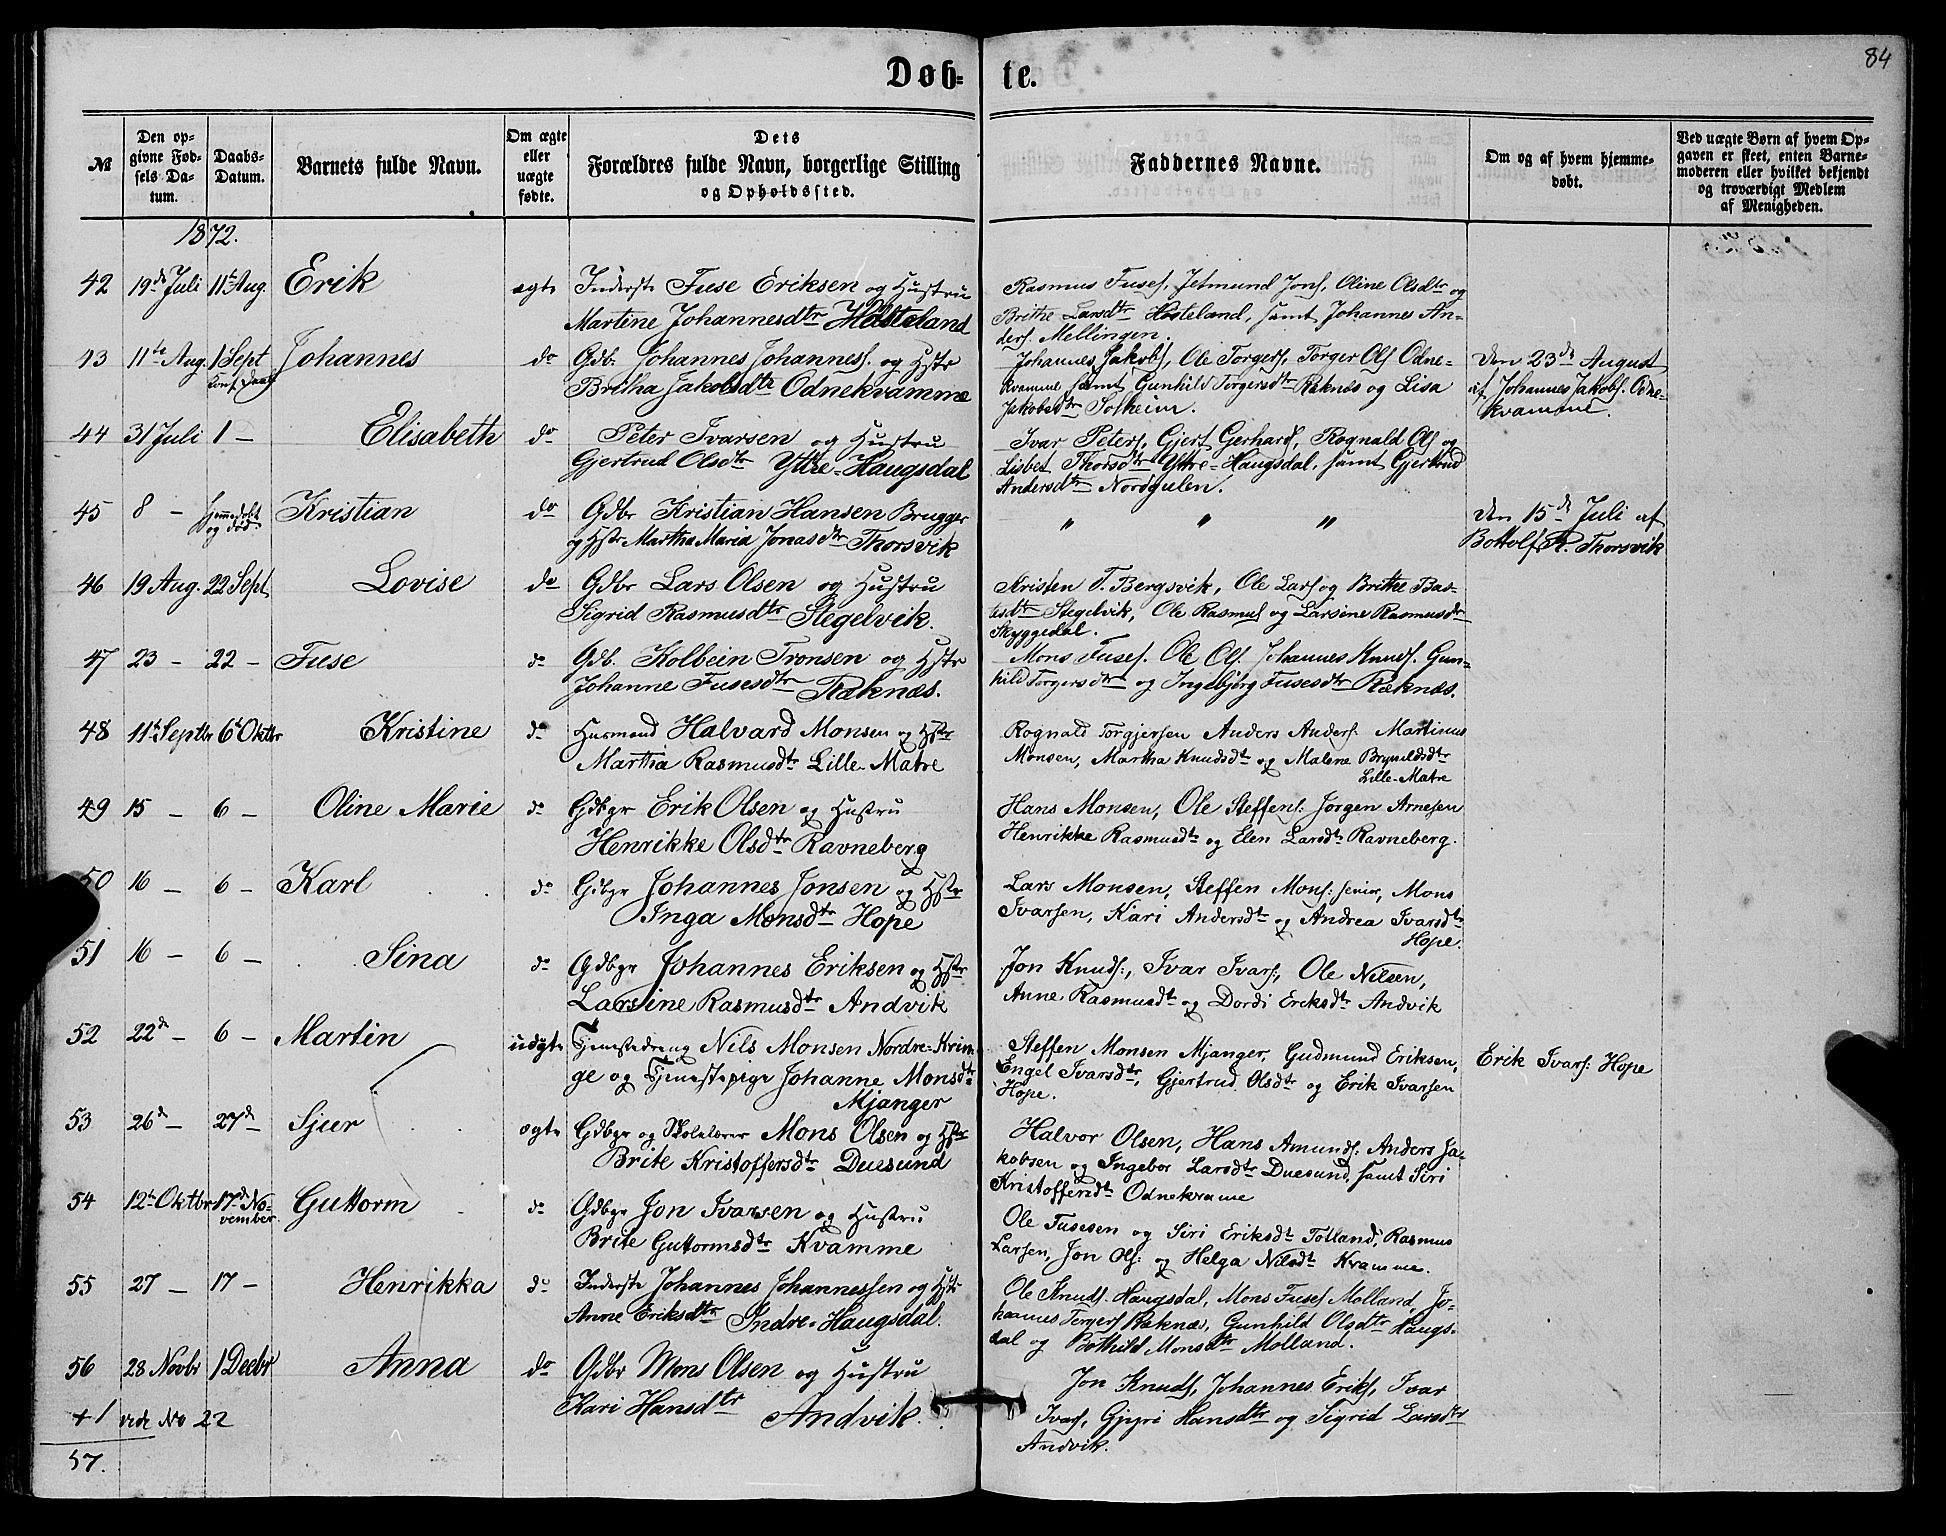 84
Døb- te.
№ | Den opgivne Fødsels Datum. | Daabs-Datum. | Barnets fulde Navn. | Om ægte eller uægte fødte. | Dets Forældres fulde Navn, borgerlige Stilling og Opholdssted. | Faddernes Navne. | Om og af hvem hjemmedøbt. | Ved uægte Børn af hvem Opgaven er skeet, enten Barnemoderen eller hvilket bekjendt og troværdigt Medlem af Menigheden.
1872.
42 19de Juli 11te Aug. Erik ægte Inderste Fuse Eriksen og Hustru
Martine Johannesdtr Hosteland
Rasmus Fuses. Jetmund Jons. Oline Olsdtr og
Brithe Larsdtr Hosteland, samt Johannes An-
ders. Mellingen.
43 11te Aug. 1 Sept Konf. Dag Johannes do Gdb. Johannes Johanness. og Hstr
Britha Jakobsdtr Odnekvamme
Johannes Jakobs, Ole Torgers, Torger Ols Odne-
kvamme samt Gunhild Torgersdtr Ræknæs og Lisa
Jakobsdtr Solheim.
Den 23de August
af Johannes Jakobs. Odne-
kvamme.
44 31 Juli 1 – Elisabeth do Peter Ivarsen og Hustru
Gjertrud Olsdtr Yttre-Haugsdal
Ivar Peters, Gjert Gerhards, Rognald Ols og
Lisbet Thorsdtr Yttre-Haugsdal, samt Gjertrud
Andersdtr Nordgulen.
45 8 – Hjemmedøbt og død. Kristian do Gdbr Kristian Hansen Brugger
og Hstr Martha Maria Jonasdtr Thorsvik
" " "
Den 15de Juli af
Bottolf R. Thorsvik
46 19 Aug. 22 Sept Lovise do Gdbr Lars Olsen og Hustru
Sigrid Rasmusdtr Stegelvik.
Kristen T. Bergsvik, Ole Lars og Brithe Bas-
tesdtr Stegelvik, Ole Rasmus og Larsine Rasmusdtr
Skyggedal.
47 23 – 22 – Fuse do Gdb. Kolbein Tronsen og Hstr
Johanne Fusesdtr Ræknæs.
Mons Fuses. Ole Ols. Johannes Knuds. Gun-
hild Torgersdtr og Ingebjørg Fusesdtr Ræknæs.
48 11te Septbr 6te Oktbr Kristine do Husmand Halvard Monsen og Hstr
Martha Rasmusdtr Lille-Matre
Rognald Torgjersen Anders Anders. Martinus
Monsen, Martha Knudsdt og Malene Brynildsdtr
Lille-Matre
49 15 – 6 – Oline Marie do Gdbgr Erik Olsen og Hustru
Henrikke Olsdtr Ravneberg
Hans Monsen, Ole Steffens: Jørgen Arnesen
Henrikke Rasmusdtr og Elen Larsdtr Ravneberg.
50 16 – 6 – Karl do Gdbgr Johannes Jonsen og Hstr
Inga Monsdtr Hope
Lars Monsen, Steffen Mons: senior, Mons
Ivarsen, Kari Andersdtr og Andrea Ivarsdtr
Hope.
51 16 – 6 – Sina do Gdbgr Johannes Eriksen og Hstr
Larsine Rasmusdtr Andvik
Jon Knuds:, Ivar Ivars:, Ole Nilsen,
Anne Rasmusdt og Dordi Ericksdtr Andvik
52 22de – 6 – Martin uægte Tjenestedreng Nils Monsen Nordre-Krin-
ge og Tjenestepige Johanne Monsdtr
Mjanger
Steffen Monsen Mjanger, Gudmund Eriksen,
Engel Ivarsdtr, Gjertrud Olsdtr og Erik Ivarsen
Hope.
Erik Ivars: Hope
53 26de – 27de – Sjur ægte Gdbgr og Skolelærer Mons Olsen og Hstr
Brite Kristoffersdtr Duesund
Halvor Olsen, Hans Amunds. Anders Ja-
kobsen og Ingebor Larsdtr Duesund, samt Siri
Kristoffersdt Odnekvame
54 12te Oktbr 17de November Guttorm do Gdbgr Jon Ivarsen og Hustru
Brite Guttormsdtr Kvamme
Ole Fusesen og Siri Eriksdt Totland, Rasmus
Larsen, Jon Ols: og Helga Nilsdt Kvamme.
55 27 – 17 – Henrikka do Inderste Johannes Johannessen og Hstr
Anne Eriksdtr Indre-Haugsdal.
Ole Knuds. Haugsdal, Mons Fuses Molland, Jo-
hannes Torgers Ræknæs, Gunhild Olsdtr Haugs-
dal og Bothild Monsdtr Molland.
56 28 Novbr 1 Decbr Anna do Gdbr Mons Olsen og Hustru
Kari Hansdtr Andvik.
Jon Knuds, Johannes Eriks, Ivar
Ivars, Gjyri Hansdtr og Sigrid Larsdtr
Andvik.
+1 vide No 22
57.